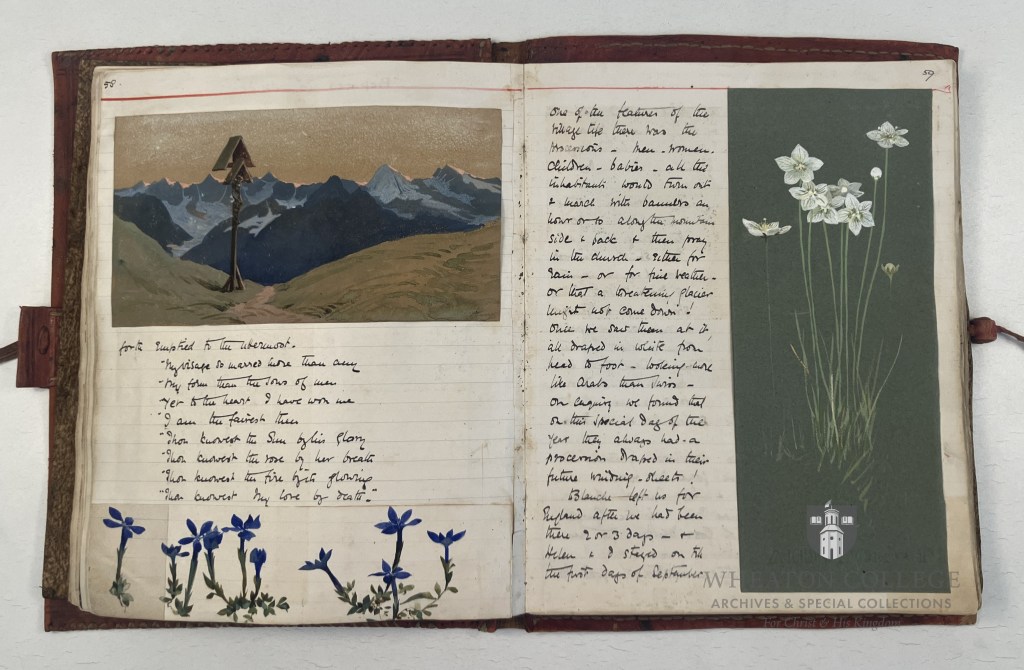 58.
forth emptied to the uttermost.
"My visage so marred more than any
"My form than the sons of men
"Yet to the heart I have won me
"I am the fairest then
"Thou knowest the Sun by his glory
"Thou knowest the rose by her breath
"Thou knowest the fire by its glowing
"Thou knowest My love by death."
59
One of the features of the
village life there was the
processions - men - women -
children - babies - all the
inhabitants would turn out
& march with banners an
hour or so along the mountain
side & back & then pray
in the church - either for
rain - or for fine weather -
or that a threatening glacier
might not come down!
Once we saw them at it,
all draped in white from
head to foot - looking more
like Arabs than Swiss -
on enquiry we found that
on this special day of the
year they always had a
procession draped in their
future winding-sheets!
Blanche left us for
England after we had been
there 2 or 3 days - &
Helen & I stayed on till
the first days of September
WHEATON COLLEGE
ARCHIVES & SPECIAL COLLECTIONS
For Christ & His Kingdom